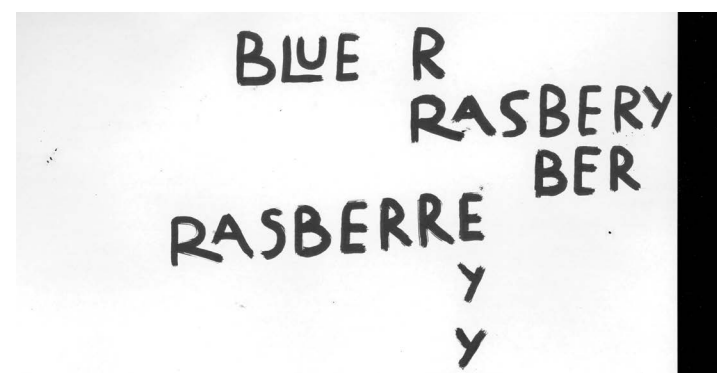 BLUE R
RASBERY
BER
RASBERRE
Y
Y